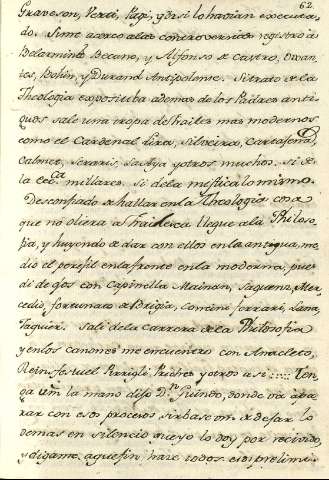 62
Graveson, Berti, Pagi, y dn si lo havian executa-
do. Si me acerco a las controversias registro à
Belarmino, Becano, y Alfonso de Castro,
y Durand Antipolense. Si trato de la
Theologia expositiba ademas de los Padres anti-
guos sale una tropa de frailes mas modernos
como el Cardenal Lira, Silveira, Cartagena,
Calmet, y otros muchos. si de
la millares. si de la mistica lo mismo.
Desconfiado de hallar en la Theologia cosa
que no oliera a frailesca llegue a la Philoso-
fia, y huyendo de dar con ellos en la antigua, me
dio el perfil en la frente en la moderna, pue
di de gos con Capinella Mainan, Saguens, Mer-
cedio, fortunato de Brigia, Corsini ferrari, Lana,
Jaguier. Sali de la Carrera de la Philosofia
y en los canones me encuentro con Anacleto,
Reinfestuel Pirrigli, y otros asi :::: Ten-
ga um la mano dijo Dn Guindo, donde va à pa-
rar con esos procesos sirbase um de dejar lo
demas en silencio que yo lo doy por recivido,
y digame a que fin, hace todos esos prelimi-